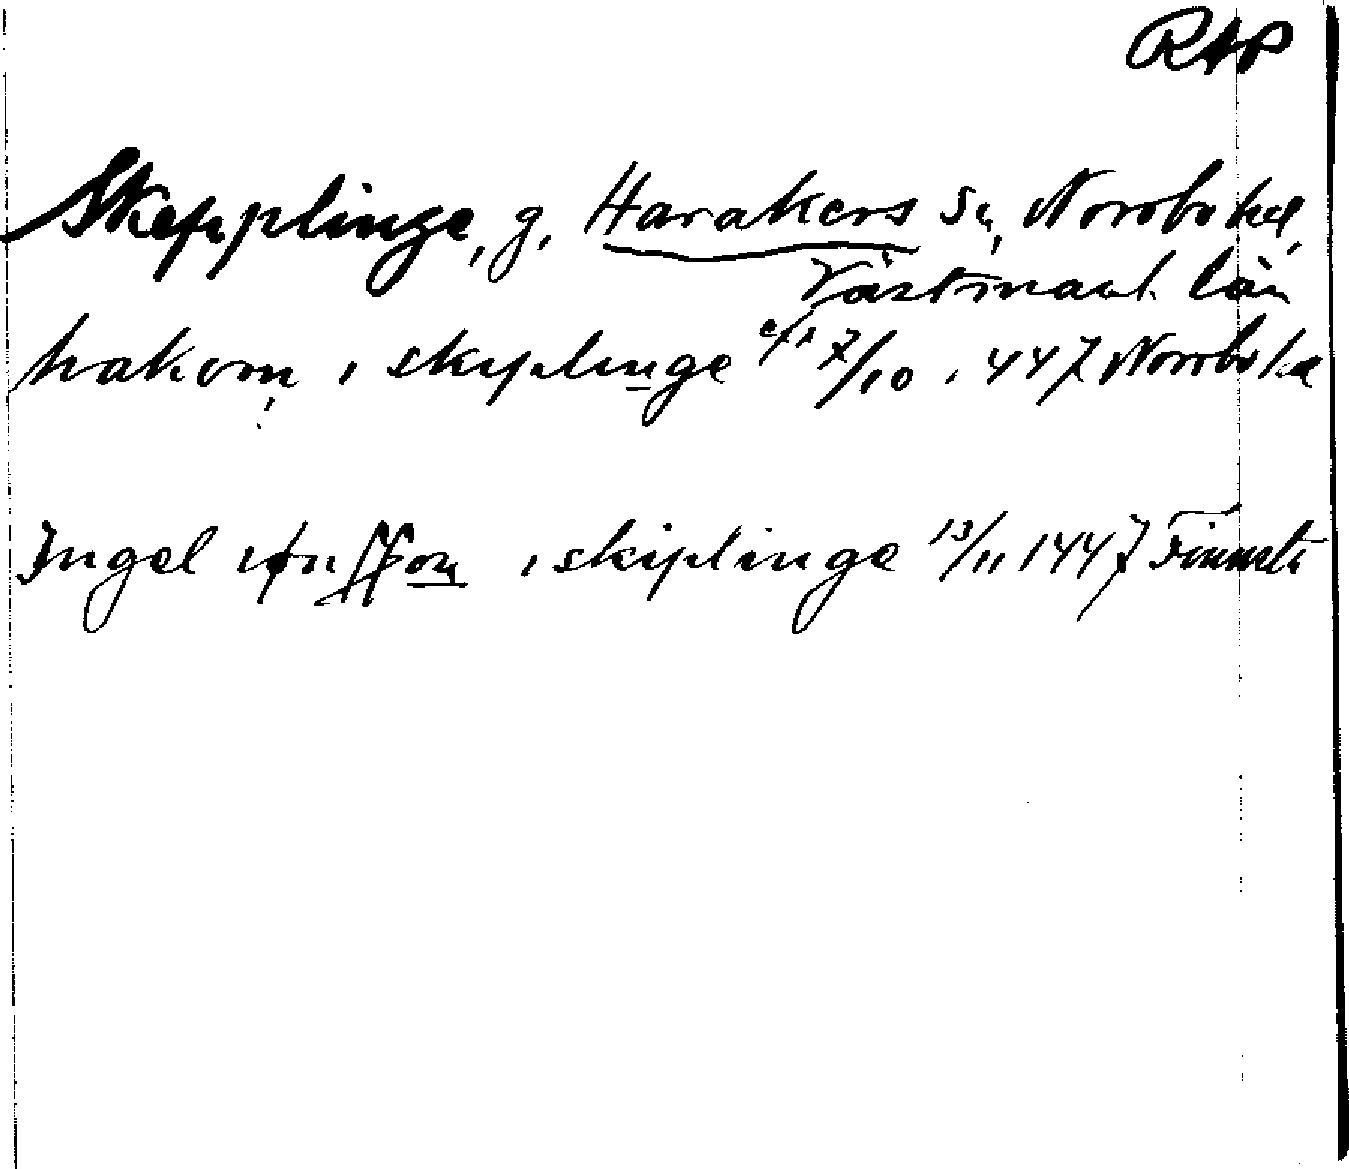 RAP
Skepplinge, g, Harakers sn, Norrbo hd,
Västmanl. län
hakom i skyplinge 7/10 1447 Norrbo hd
Ingel jønsson i skiplinge 13/11 1447